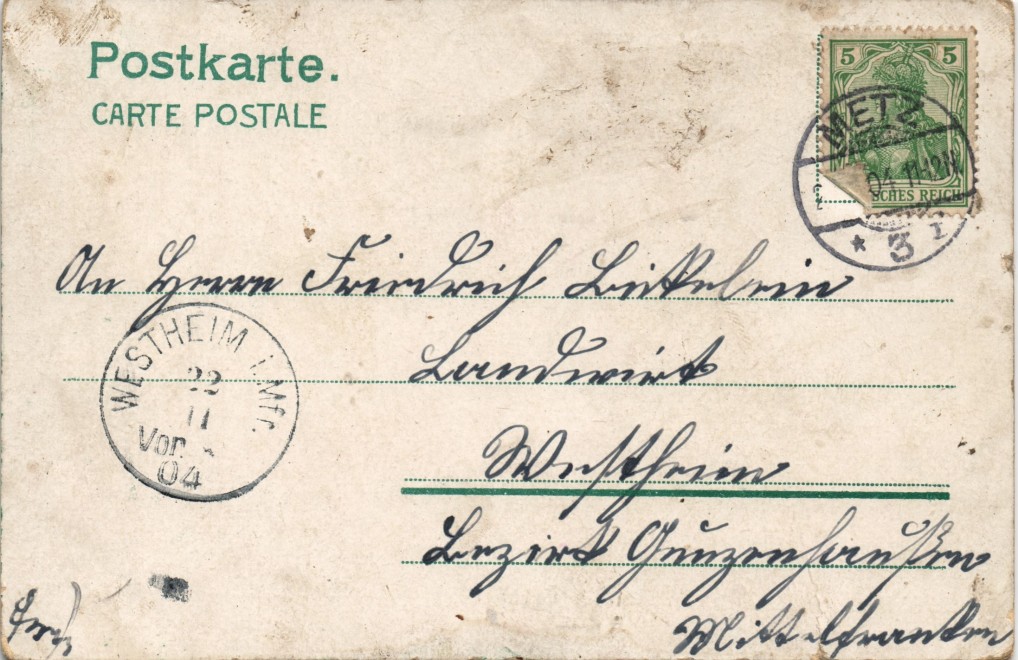 Postkarte.
CARTE POSTALE
5 5
METZ
04 11-12N
SCHES REICH
* 3 I
An Herrn Friedrich
Landwirt
WESTHEIM i. Mfr.
22
11
Vor.
04
Westheim
Bezirk Gunzenhausen
Mittelfranken